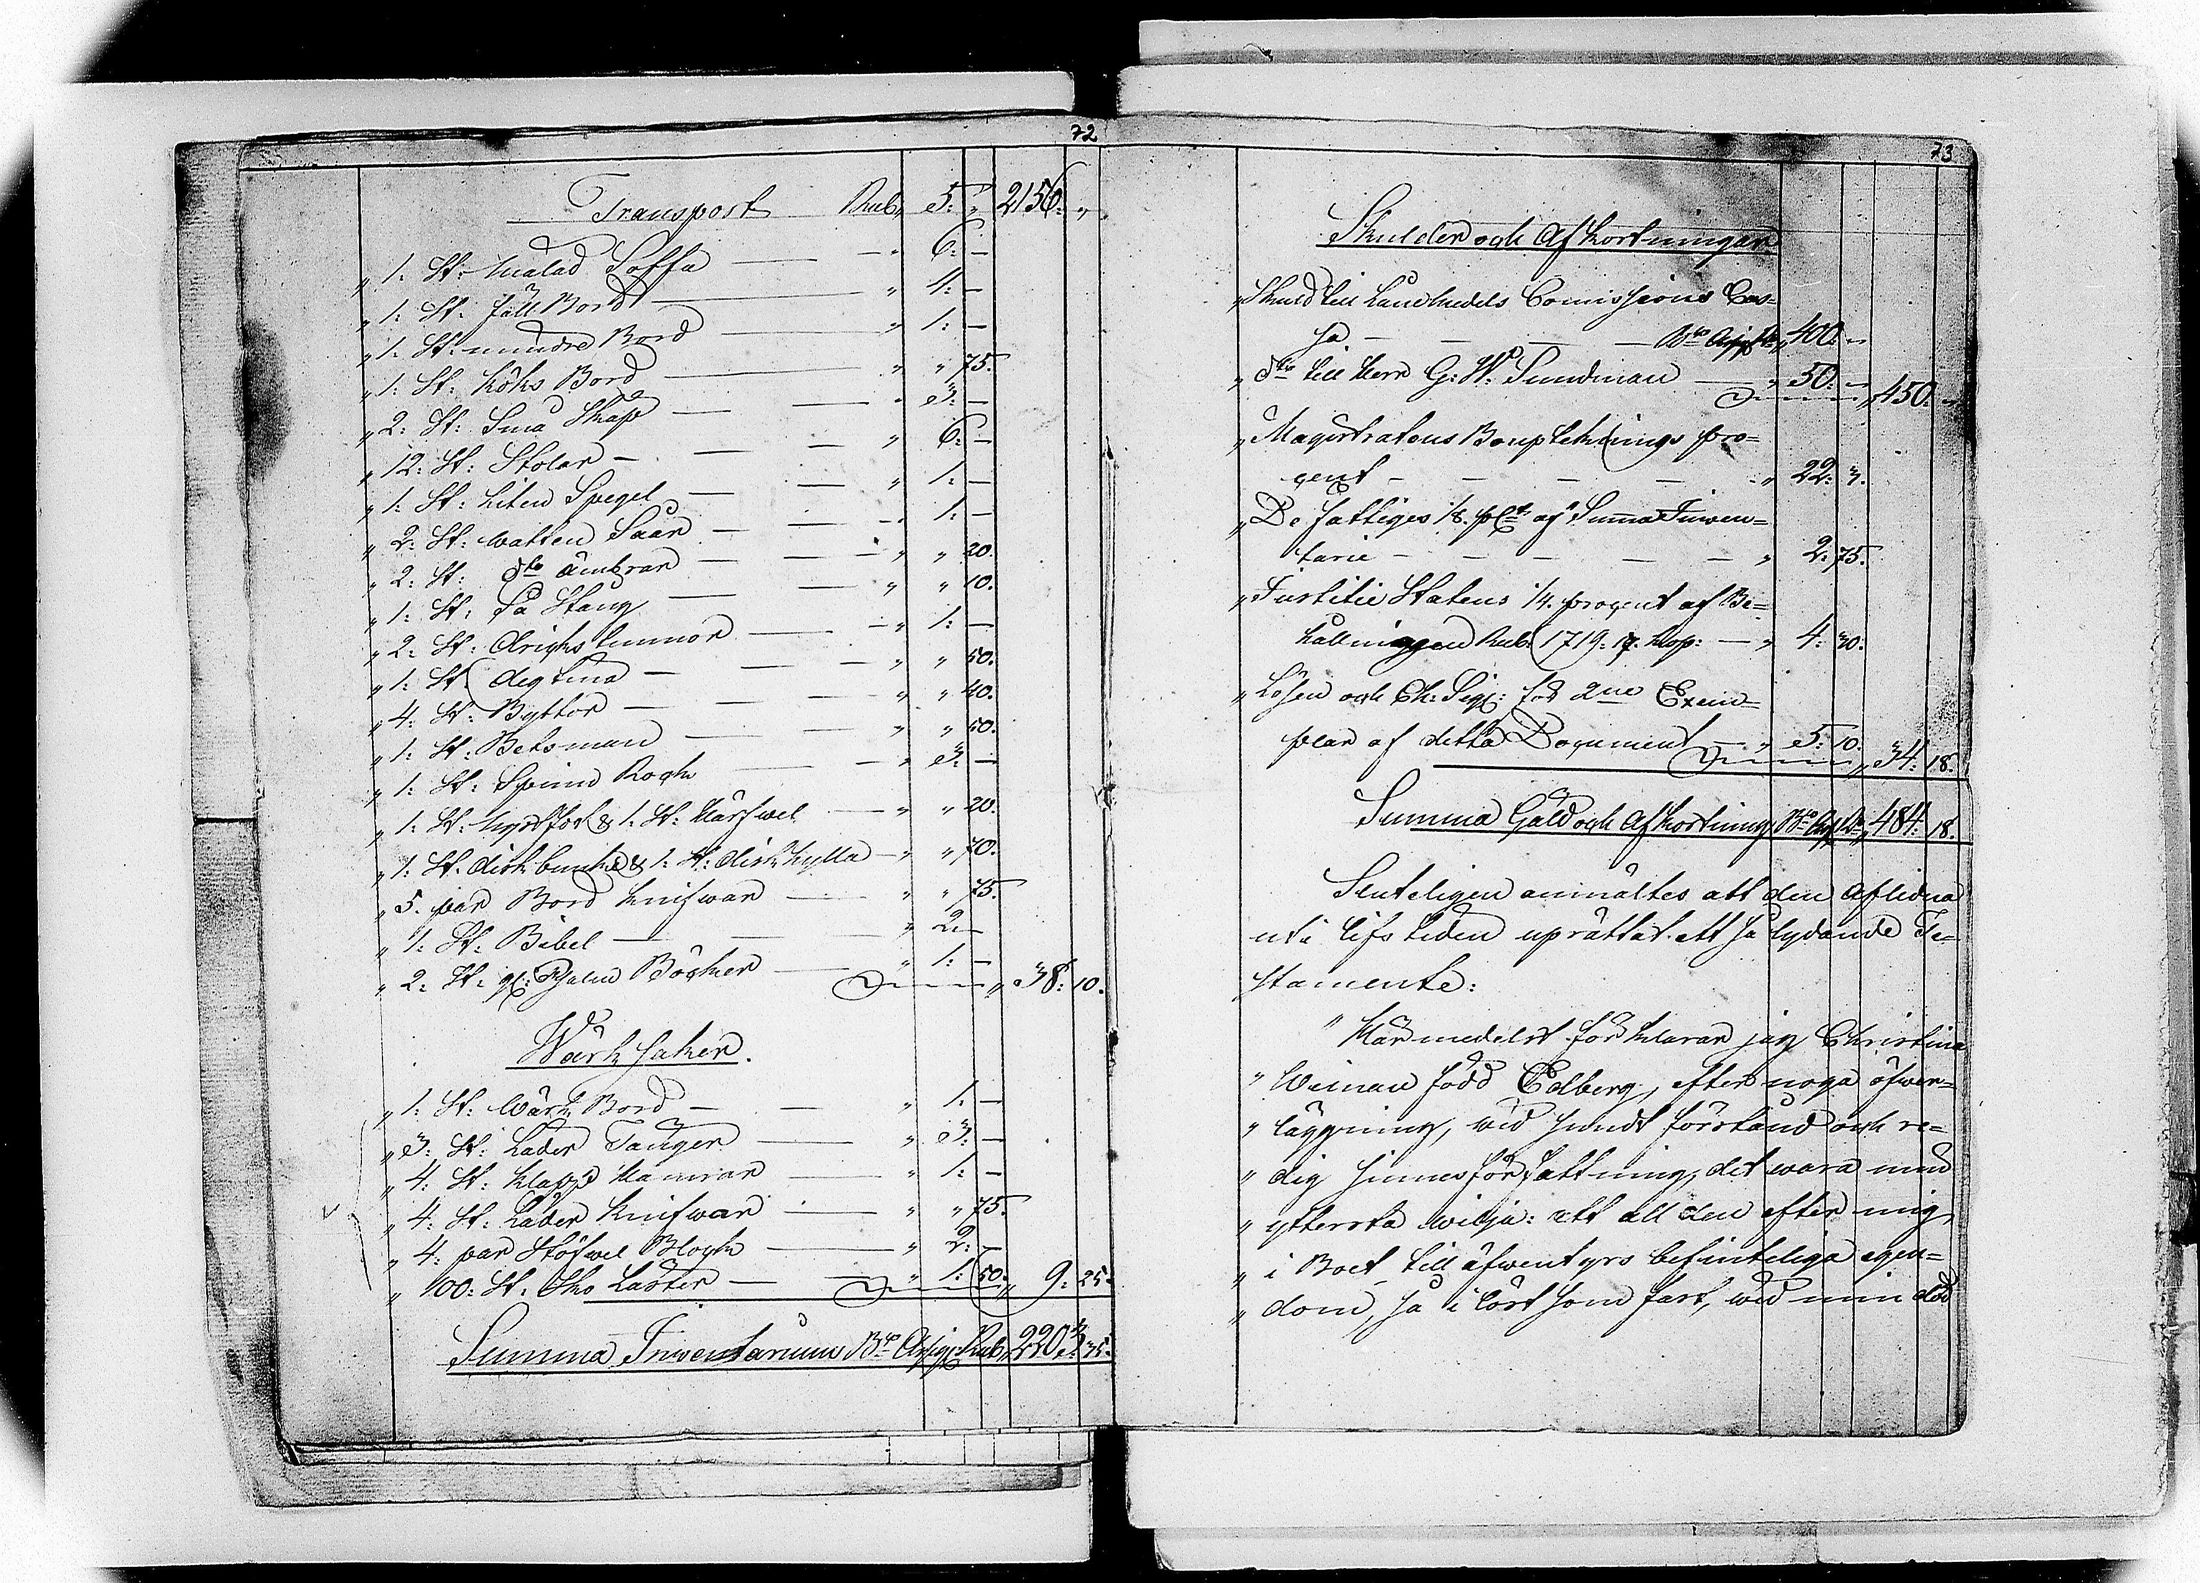 72
Transport Rub. 5: „ 2156: „
„ 1: St: målad Soffa — „ 6: —
„ 1: St: fäll Bord — „ 4: —
„ 1: St: mindre Bord — „ 1: —
„ 1: St: Köks Bord — „ „ 75.
„ 2: St: Små Skåp — „ 3: —
„ 12: St: Stolar — „ 6: —
„ 1: St: liten Spegel — „ 1: —
„ 2: St: watten Såar — „ 1: —
„ 2: St: dto ämbrar — „ „ 20.
„ 1: St: Så Stång — „ „ 10.
„ 2: St: drickstunnor — „ 1: —
„ 1: St: degtina — „ „ 50.
„ 4: St: Byttor — „ „ 40.
„ 1: St: Betsman — „ „ 50.
„ 1: St: Spinn Rock — „ 3: —
„ 1: St: & 1: St: Härfwel — „ „ 20.
„ 1: St: disk bunke & 1: St: diskhylla — „ „ 70.
„ 5. par Bord Knifwar — „ „ 75.
„ 1: St: Bibel — „ 2: —
„ 2: St: gl: Psalm Böcker — „ 1: — „ 38: 10.
Wärk saker.
„ 1: St: Wärk Bord — „ 1: —
„ 3: St: Läder Tänger — „ 3: —
„ 4: St: Klapp Hamrar — „ 1: —
„ 4: St: Läder Knifwar — „ „ 75.
„ 4: par Stöfwel Block — „ 2: —
„ 100: St: Sko Läster — „ 1: 50. „ 9: 25.
Summa Inwentarium Bco Assign: Rub. 2203: 35.
73
Skulder och Afkortningar
„ Skuld till Landtmedels Comissions Cas=
sa — Bco Assign: Rub. 400: „
„ dto till Herr G: W: Sundman — „ 50: — „ 450: „
„ Magistratens Bouptekning's pro=
cent — „ 22: 3.
„ De fattiges 1/8. pCt af Summa Inwen=
tarie — „ 2: 75.
„ Justitie Statens 1/4. procent af Be=
hållningen Rub: 1719: 17. kop: — „ 4: 30.
„ Lösen och Ch: Sig: för 2ne Exem=
plar af detta Document — „ 5: 10. „ 34: 18.
Summa Gäld och Afkortning Bco Assign: Rub. 484: 18.
Sluteligen anmältes att den aflidna
uti lifstiden uprättat ett så lydande Te=
stamente:
" Härmedelst förklarar jag Christina
" Weman född Edberg, efter noga öfwer=
" läggning, wid sundt förstånd och re=
" dig sinnesförfattning, det wara min
" yttersta wilja: att all den efter mig
" i Boet till äfwentyrs befinteliga egen=
" dom, så i löst som fast, wid min död